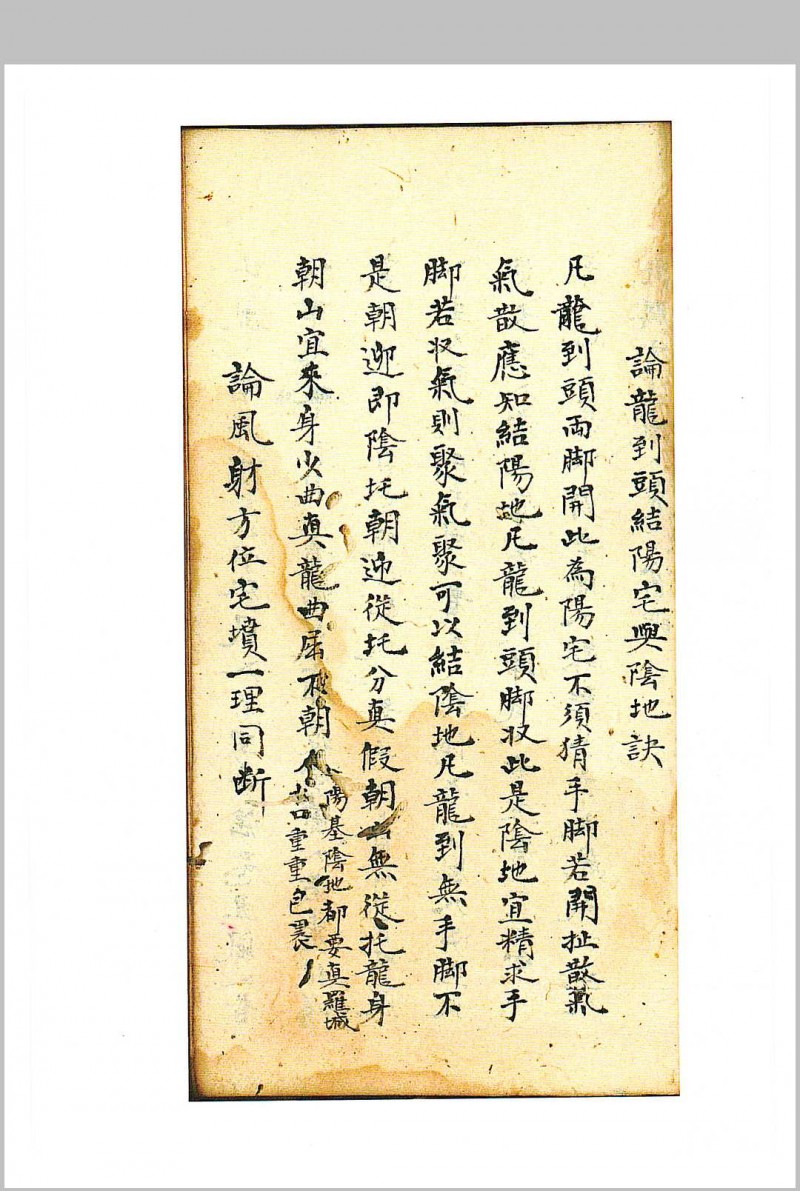 論龍到頭結陽宅與陰地訣
凡龍到頭両脚開此為陽宅不須猜手脚若開扯散氣
氣散應知結陽地凡龍到頭脚収此是陰地宜精求手
脚若収氣則聚氣聚可以結陰地凡龍到無手脚不
是朝迎即陰圫朝迎從圫分真假朝山無從托龍身
朝山宜來身少曲真龍曲屈不朝人
陽基陰地都要真羅城
皆重重包裹
論風射方位宅墳一理同断